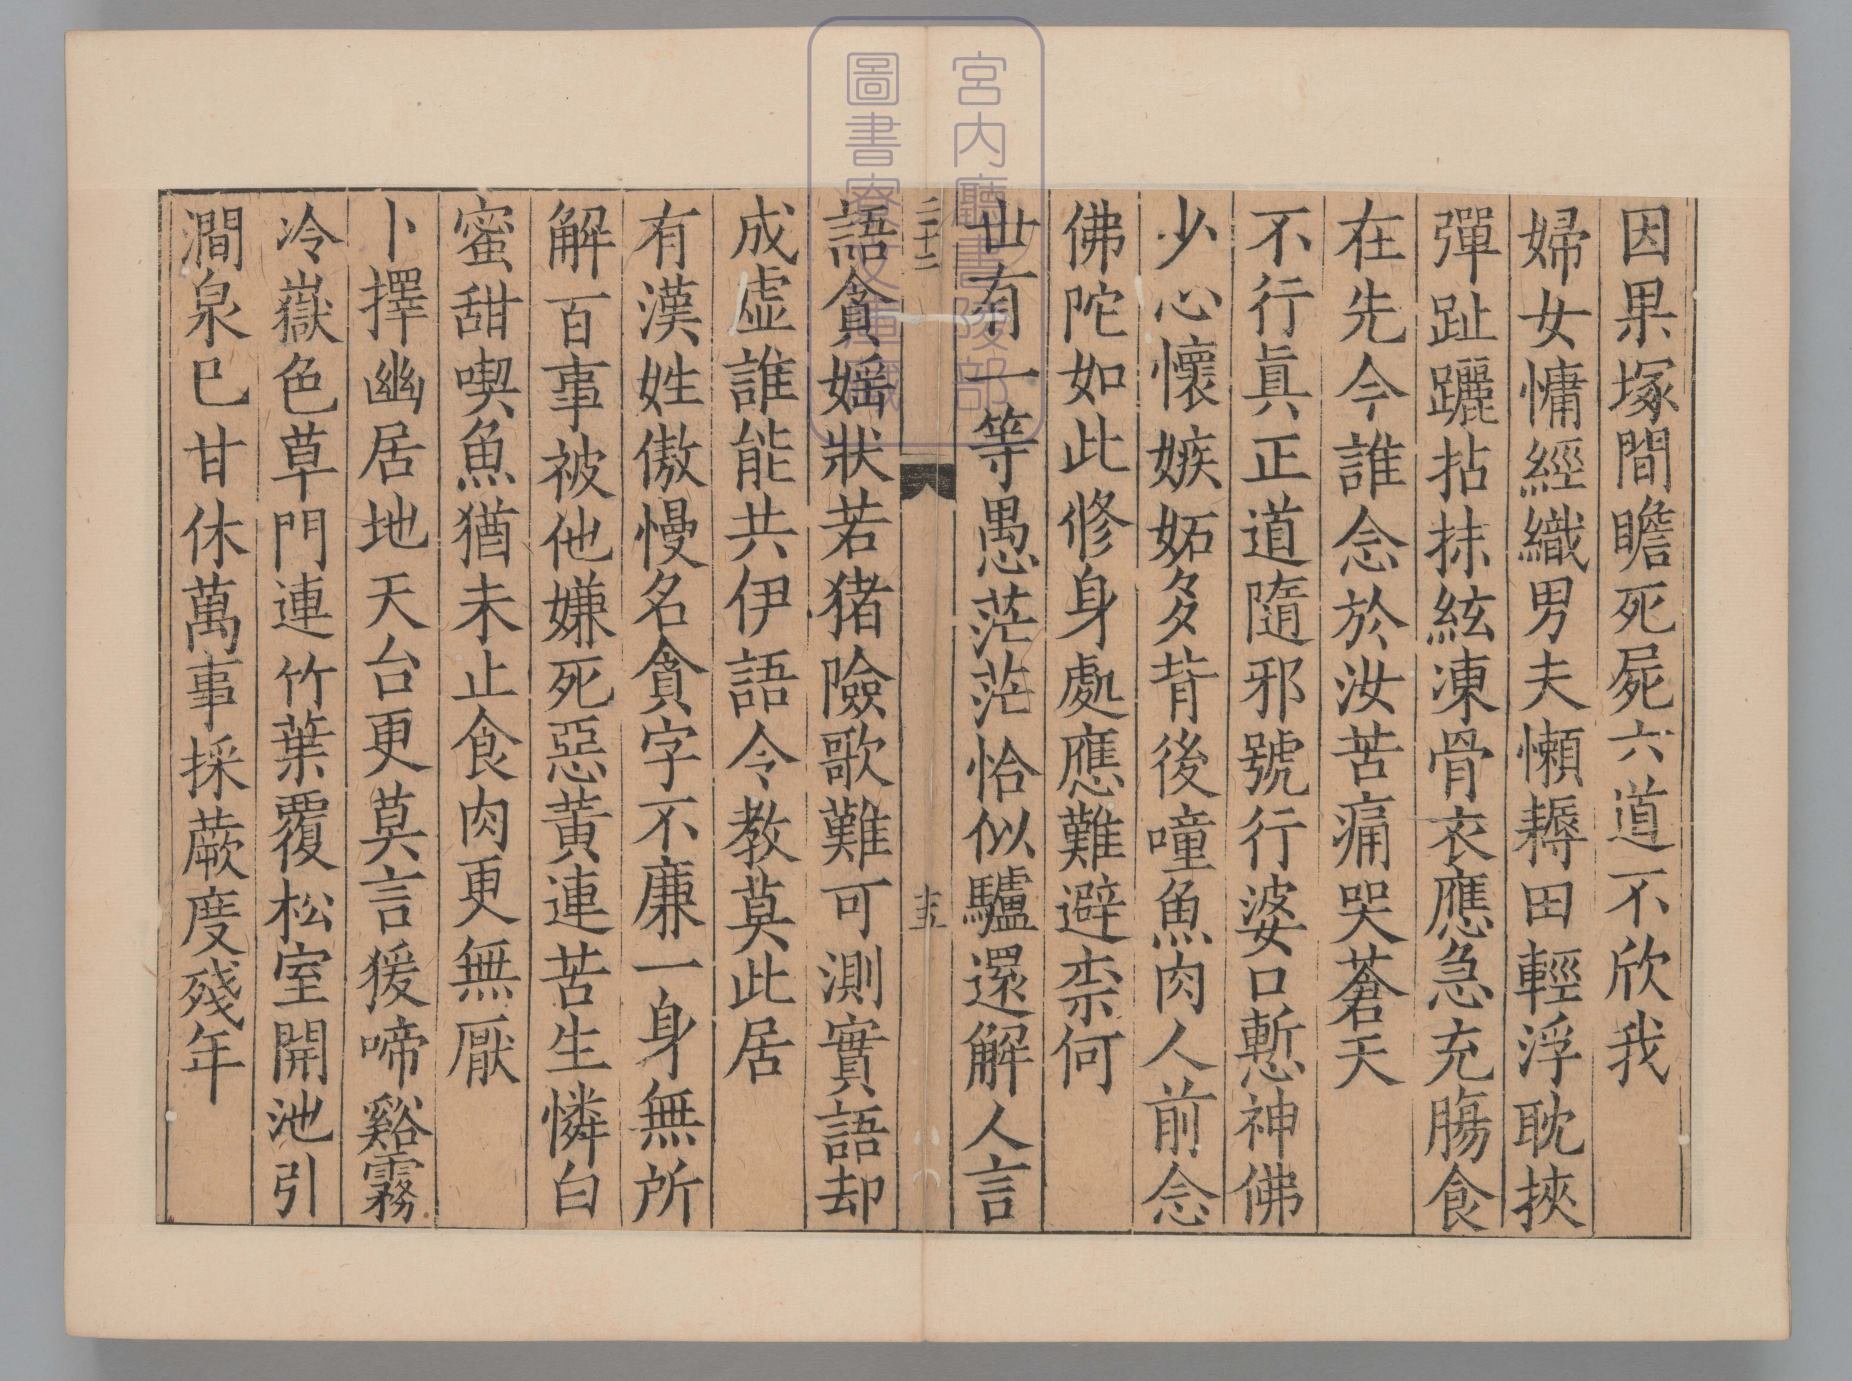 因果塚間瞻死屍六道不欣我
婦女慵經織男夫懶耨田輕浮耽挾
彈跕躧拈抹絃凍骨衣應急充腸食
在先今誰念於汝苦痛哭蒼天
不行眞正道隨邪號行婆口慙神佛
少心懷嫉妬多背後噇魚肉人前念
佛陀如此修身處應難避柰何
世有一等愚茫茫恰似驢還解人言
語貪婬狀若猪險歌難可測實語却
成虛誰能共伊語令教莫此居
有漢姓傲慢名貪字不廉一身無所
解百事被他嫌死惡黃連苦生憐白
蜜甜喫魚猶未止食肉更無厭
卜擇幽居地天台更莫言猨啼谿霧
冷嶽色草門連竹葉覆松室開池引
澗泉已甘休萬事採蕨度殘年
二十二
十五
宮內廳書陵部
圖書寮文庫藏